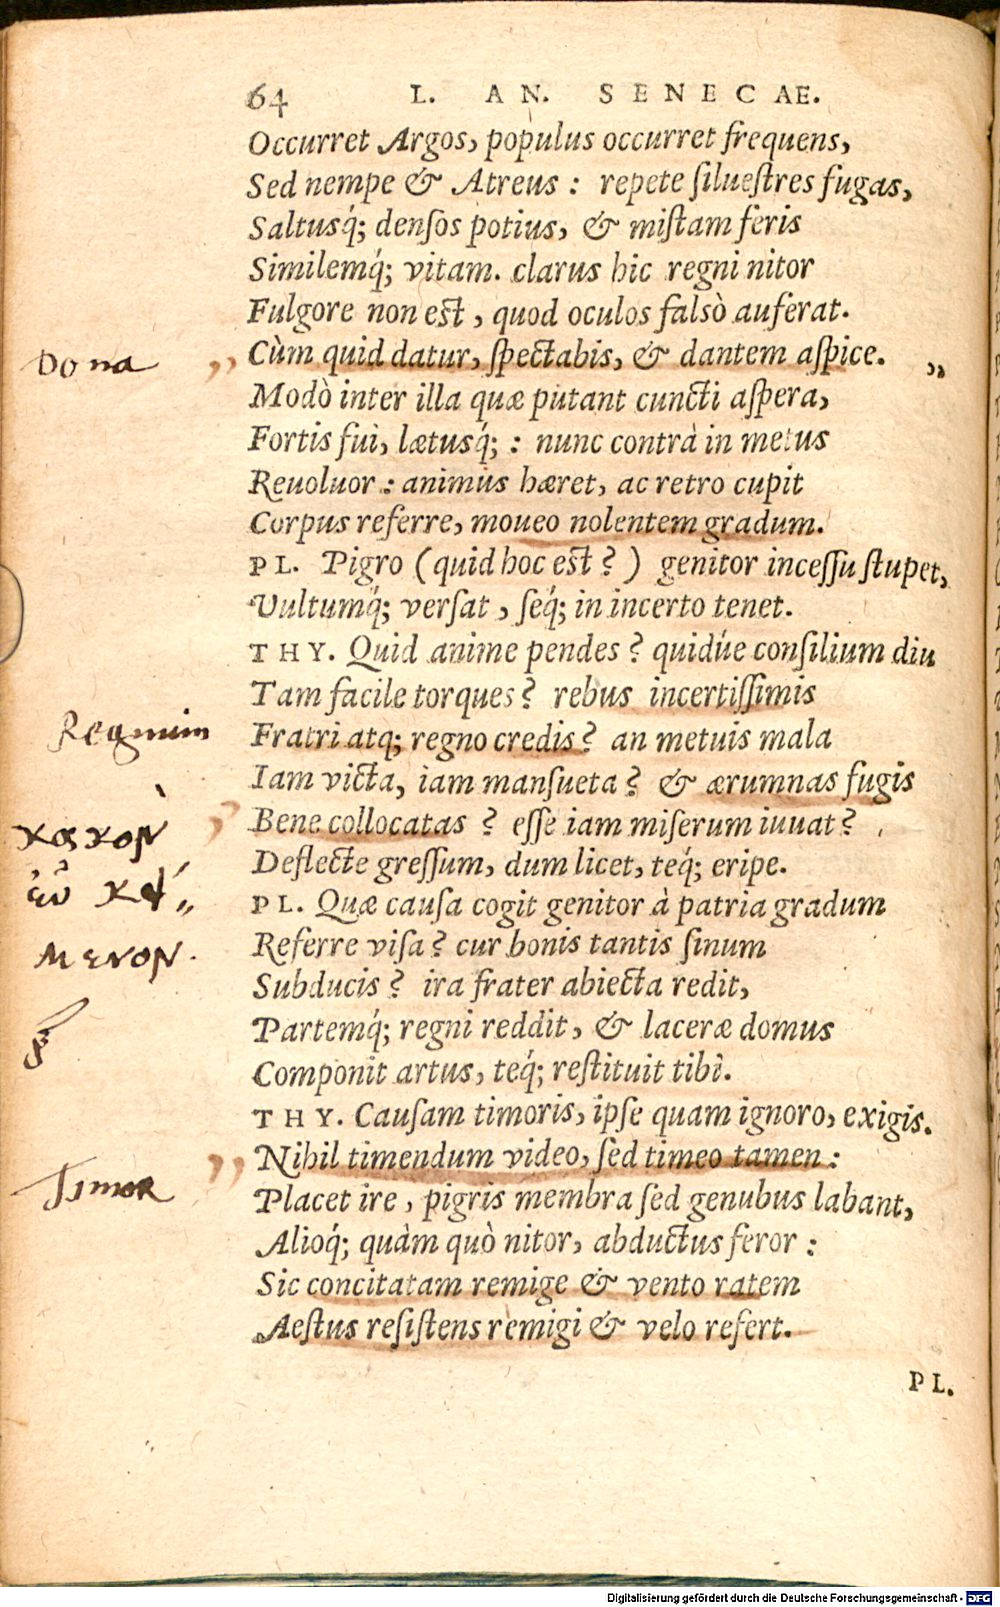 64 L. AN. SENECAE.
Occurret Argos, populus occurret frequens,
Sed nempe & Atreus : repete silueſtres fugas,
Saltusq́; denſos potius, & miſtam feris
Similemq́; vitam. clarus hic regni nitor
Fulgore non eſt, quod oculos falsò auferat.
Dona ,, Cùm quid datur, ſpectabis, & dantem aſpice. ,,
Modò inter illa quæ putant cuncti aſpera,
Fortis fui, lætusq́; : nunc contrà in metus
Reuoluor : animus hæret, ac retro cupit
Corpus referre, moueo nolentem gradum.
PL. Pigro (quid hoc eſt?) genitor inceſſu ſtupet,
Vultumq́; verſat, ſeq́; in incerto tenet.
THY. Quid anime pendes? quidúe conſilium diu
Tam facile torques? rebus incertiſſimis
Regnum Fratri atq; regno credis? an metuis mala
Iam victa, iam manſueta? & ærumnas fugis
κακὸν , Bene collocatas? eſſe iam miſerum iuuat?
Deflecte greſſum, dum licet, teq́; eripe.
εὖ κεί,,
PL. Quæ cauſa cogit genitor à patria gradum
μενον. Referre viſa? cur bonis tantis ſinum
Subducis? ira frater abiecta redit,
Partemq́; regni reddit, & laceræ domus
Componit artus, teq́; reſtituit tibi.
THY. Cauſam timoris, ipſe quam ignoro, exigis.
Timor ,, Nihil timendum video, ſed timeo tamen :
Placet ire, pigris membra ſed genubus labant,
Alioq́; quàm quò nitor, abductus feror :
Sic concitatam remige & vento ratem
Aeſtus reſiſtens remigi & velo refert.
PL.
Digitalisierung gefördert durch die Deutsche Forschungsgemeinschaft - DFG